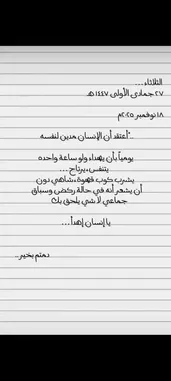 الثلاثاء ...
٢٧ جمادى الأولى ١٤٤٧ هـ
١٨ نوفمبر ٢٠٢٥م
.."أعتقد أن الإنسان مدين لنفسه
يومياً بأن يهداء ولو ساعة واحده
يتنفس ، يرتاح ...
يشرب كوب قهوة ، شاهي دون
أن يشعر أنه في حالة ركض وسباق
جماعي لا شي يلحق بك
يا إنسان إهدأ ...
دمتم بخير ..